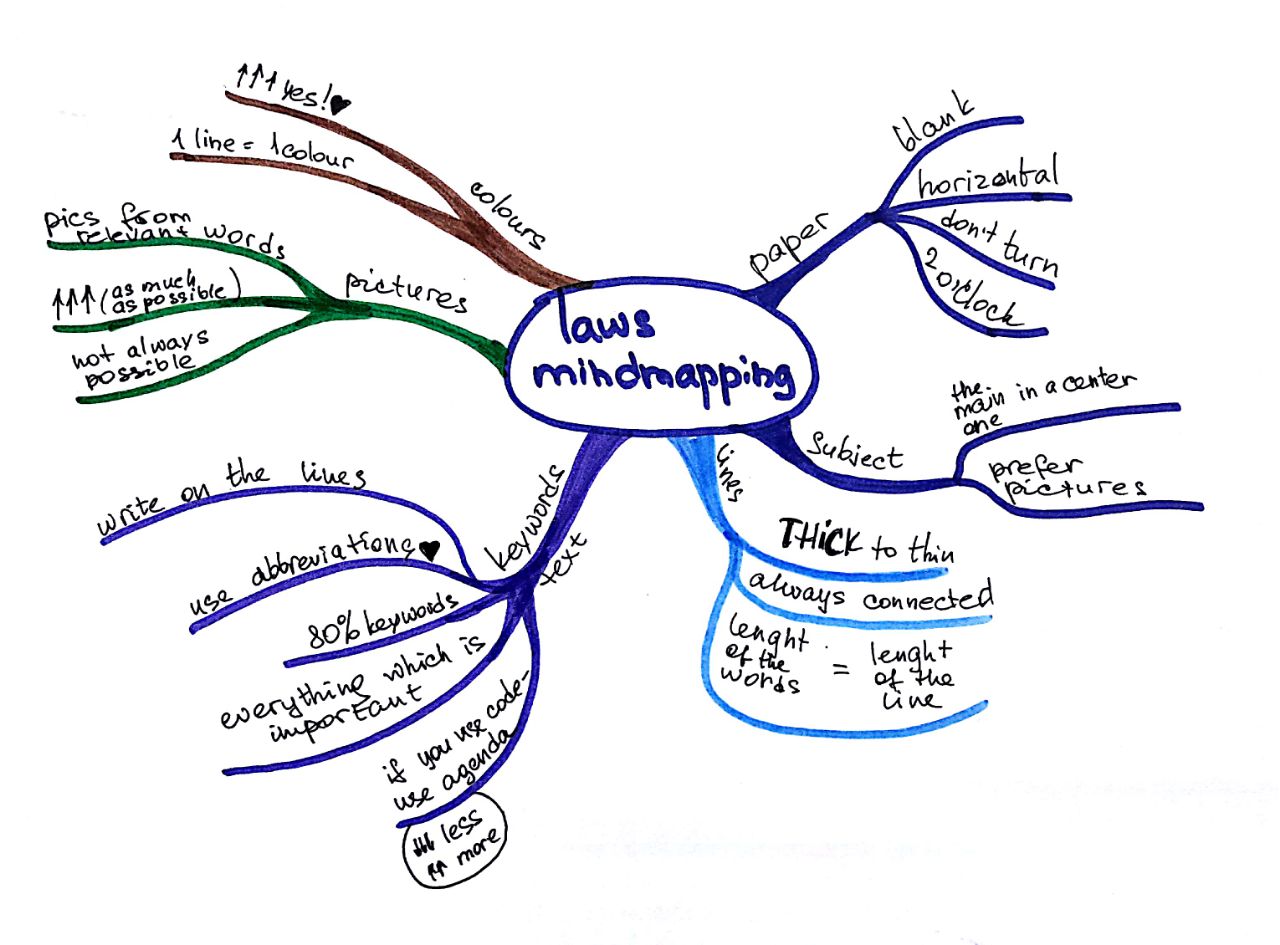 laws
mindmapping
paper
blank
horizontal
don't turn
2 o'clock
subject
the
main in a center
one
prefer
pictures
lines
THiCK to thin
always connected
lenght
of the
words
=
lenght
of the
line
keywords
text
write on the lines
use abbreviations ♥
80% keywords
everything which is
important
if you use code-
use agenda
↓↓↓ less
↑↑ more
pictures
pics from
relevant words
↑↑↑ (as much
as possible)
not always
possible
colours
↑↑↑ yes! ♥
1 line = 1 colour